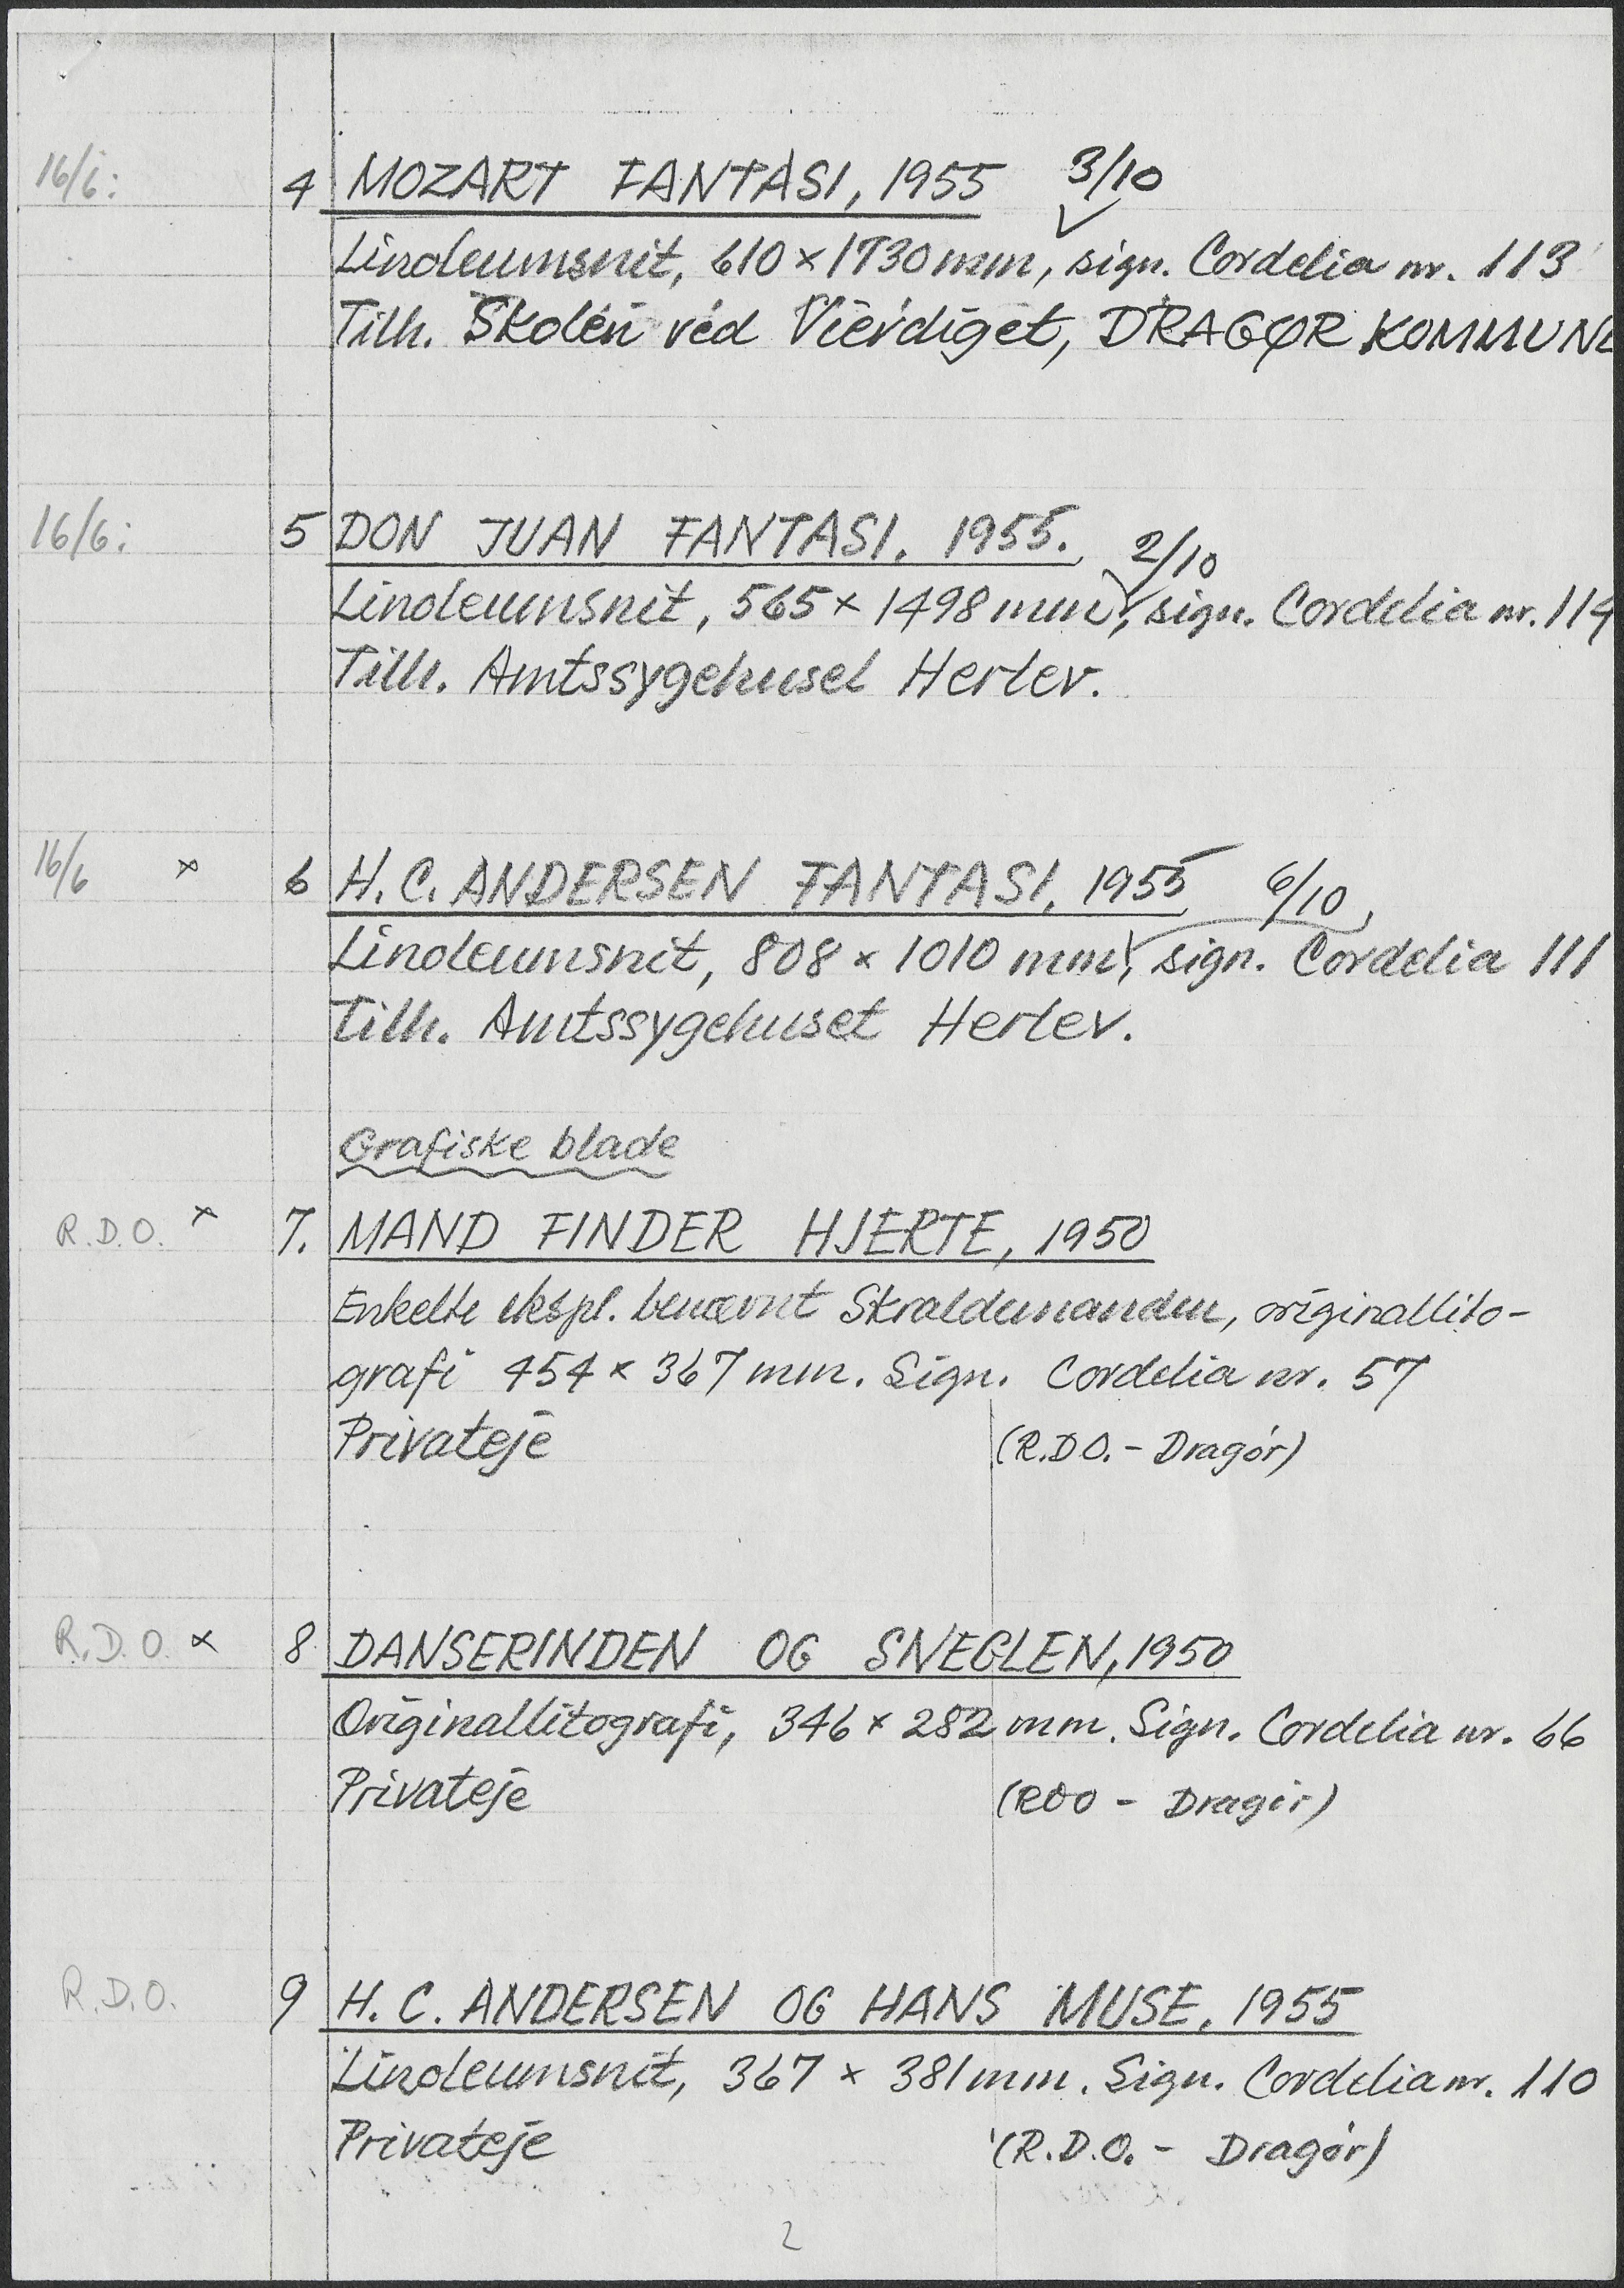 16/6: 4 MOZART FANTASI, 1955 3/10
Linoleumsnit, 610 × 1730 mm, sign. Cordelia nr. 113
Tilh. Skolen ved Vierdiget, DRAGØR KOMMUNE
16/6: 5 DON JUAN FANTASI. 1955. 2/10
Linoleumsnit, 565 × 1498 mm, sign. Cordelia nr. 114
Tilh. Amtssygehuset Herlev.
16/6 × 6 H. C. ANDERSEN FANTASI. 1955 6/10,
Linoleumsnit, 808 × 1010 mm, sign. Cordelia 111
Tilh. Amtssygehuset Herlev.
Grafiske blade
R.D.O. × 7. MAND FINDER HJERTE, 1950
Enkelte ekspl. benævnt Skraldemanden, originallito-
grafi 454 × 367 mm. Sign. Cordelia nr. 57
Privateje (R.D.O. - Dragør)
R.D.O. × 8 DANSERINDEN OG SNEGLEN, 1950
Originallitografi, 346 × 282 mm. Sign. Cordelia nr. 66
Privateje (RDO - Dragør)
R.D.O. 9 H. C. ANDERSEN OG HANS MUSE, 1955
Linoleumsnit, 367 × 381 mm. Sign. Cordelia nr. 110
Privateje (R.D.O. - Dragør)
2